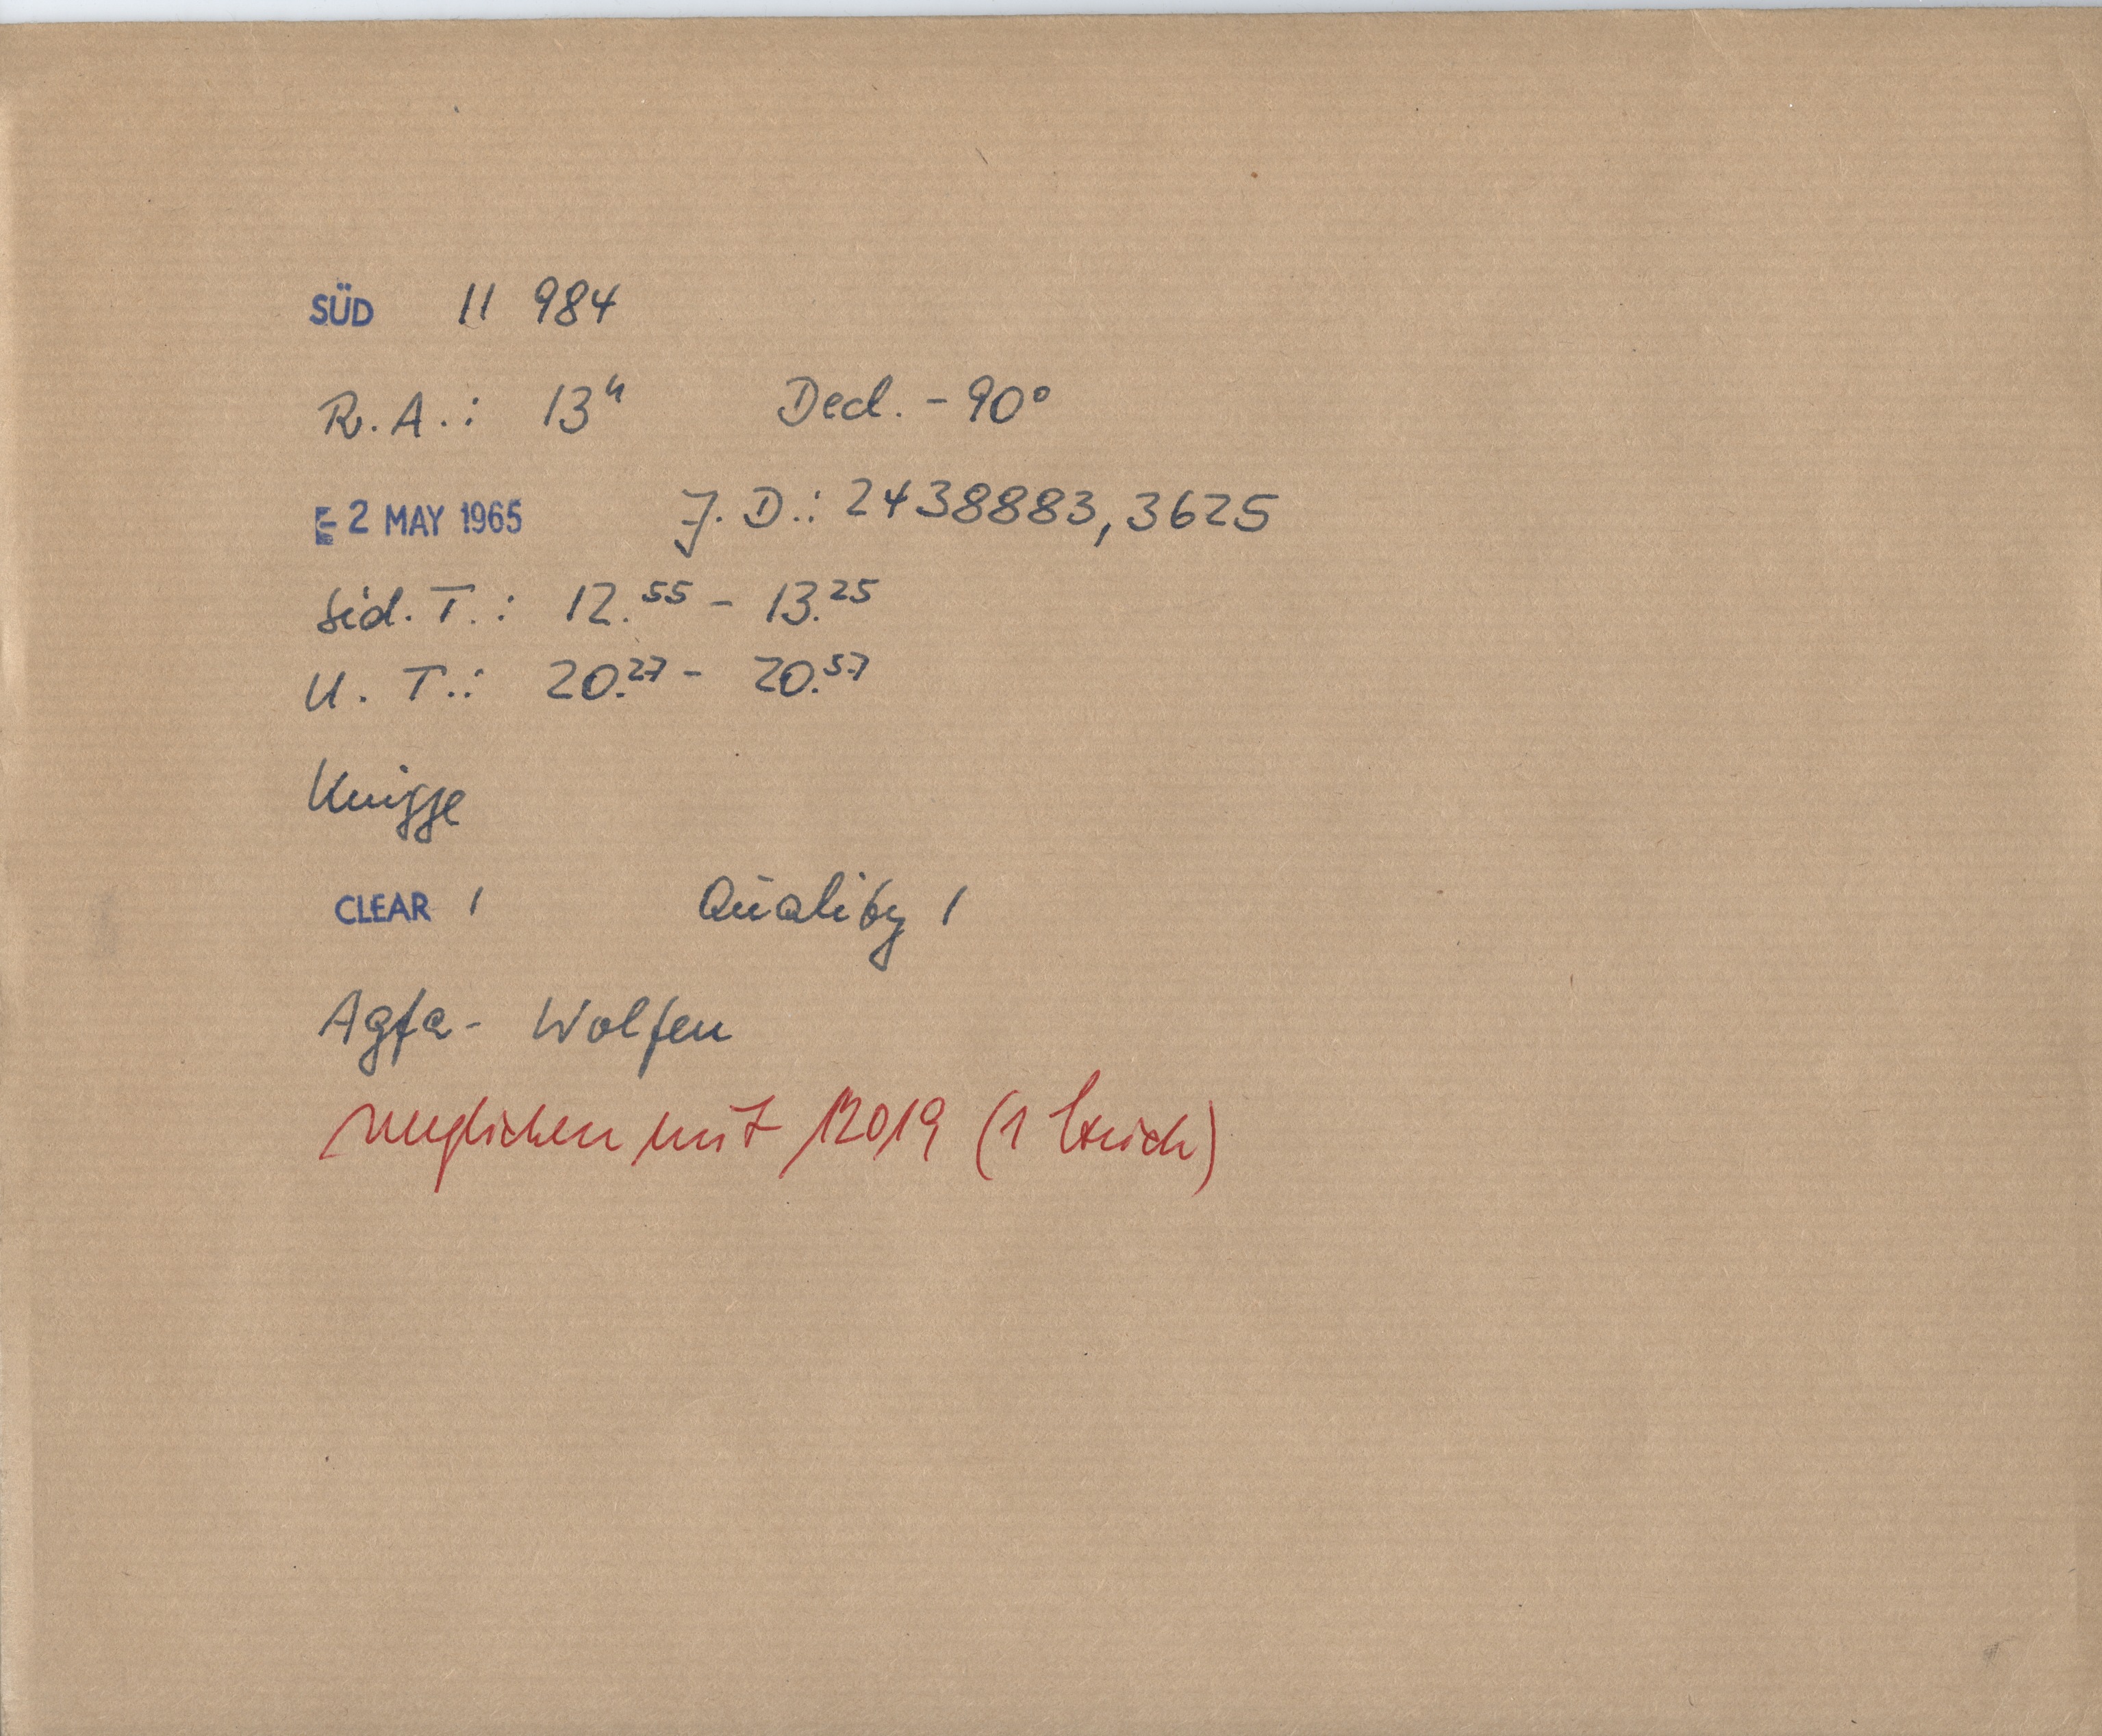 SÜD 11 984
R.A.: 13h Decl. - 90°
2 MAY 1965 J.D.: 2438883,3625
Sid. T.: 12.55 - 13.25
U. T.: 20.27 - 20.57
Knigge
CLEAR 1 Quality 1
Agfa - Wolfen
verglichen mit 12019 (1 Strich)